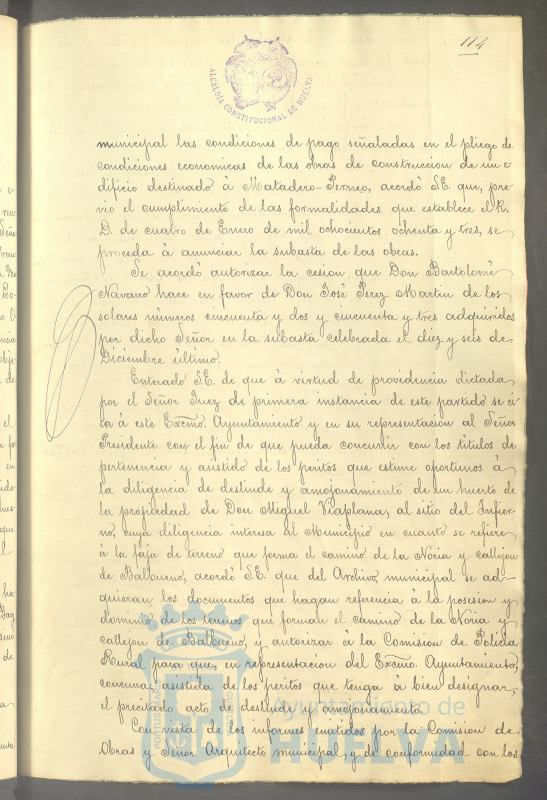 114
ALCALDIA CONSTITUCIONAL DE HUELVA
municipal las condiciones de pago señaladas en el pliego de
condiciones economicas de las obras de construccion de un e-
dificio destinado á Matadero-Perneo, acordó S.E. que, pre-
vio el cumplimiento de las formalidades que establece el R.
D. de cuatro de Enero de mil ochocientos ochenta y tres, se
proceda á anunciar la subasta de las obras.
Se acordó autorizar la cesion que Don Bartolomé
Navarro hace en favor de Don José Perez Martin de los
solares números cincuenta y dos y cincuenta y tres adquiridos
por dicho Señor en la subasta celebrada el diez y seis de
Diciembre último.
Enterado S.E. de que á virtud de providencia dictada
por el Señor Juez de primera instancia de este partido se ci-
ta á este Excmo. Ayuntamiento y en su representacion al Señor
Presidente con el fin de que pueda concurrir con los titulos de
pertenencia y asistido de los peritos que estime oportunos á
la diligencia de deslinde y amojonamiento de un huerto de
la propiedad de Don Miguel Viaplana, al sitio del Infier-
no, cuya diligencia interesa al Municipio en cuanto se refiere
á la faja de terreno que forma el camino de la Noria y callejon
de Balbueno, acordó S.E. que del Archivo municipal se ad-
quieran los documentos que hagan referencia á la posesion y
dominio de los terrenos que forman el camino de la Noria y
callejon de Balbueno, y autorizar á la Comision de Policia
Rural para que, en representacion del Excmo. Ayuntamiento,
concurra, asistida de los peritos que tenga á bien designar,
el precitado acto de deslinde y amojonamiento.
Con vista de los informes emitidos por la Comision de
Obras y Señor Arquitecto municipal, y de conformidad con los
Ayuntamiento de
HUELVA